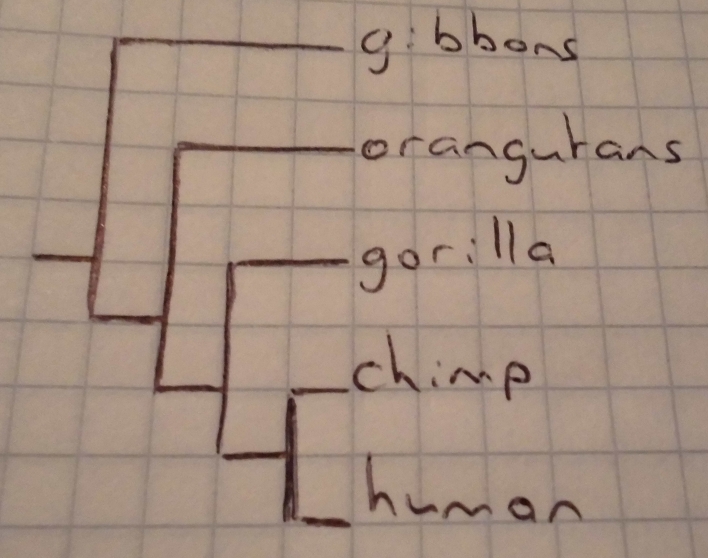 gibbons
orangutans
gorilla
chimp
human